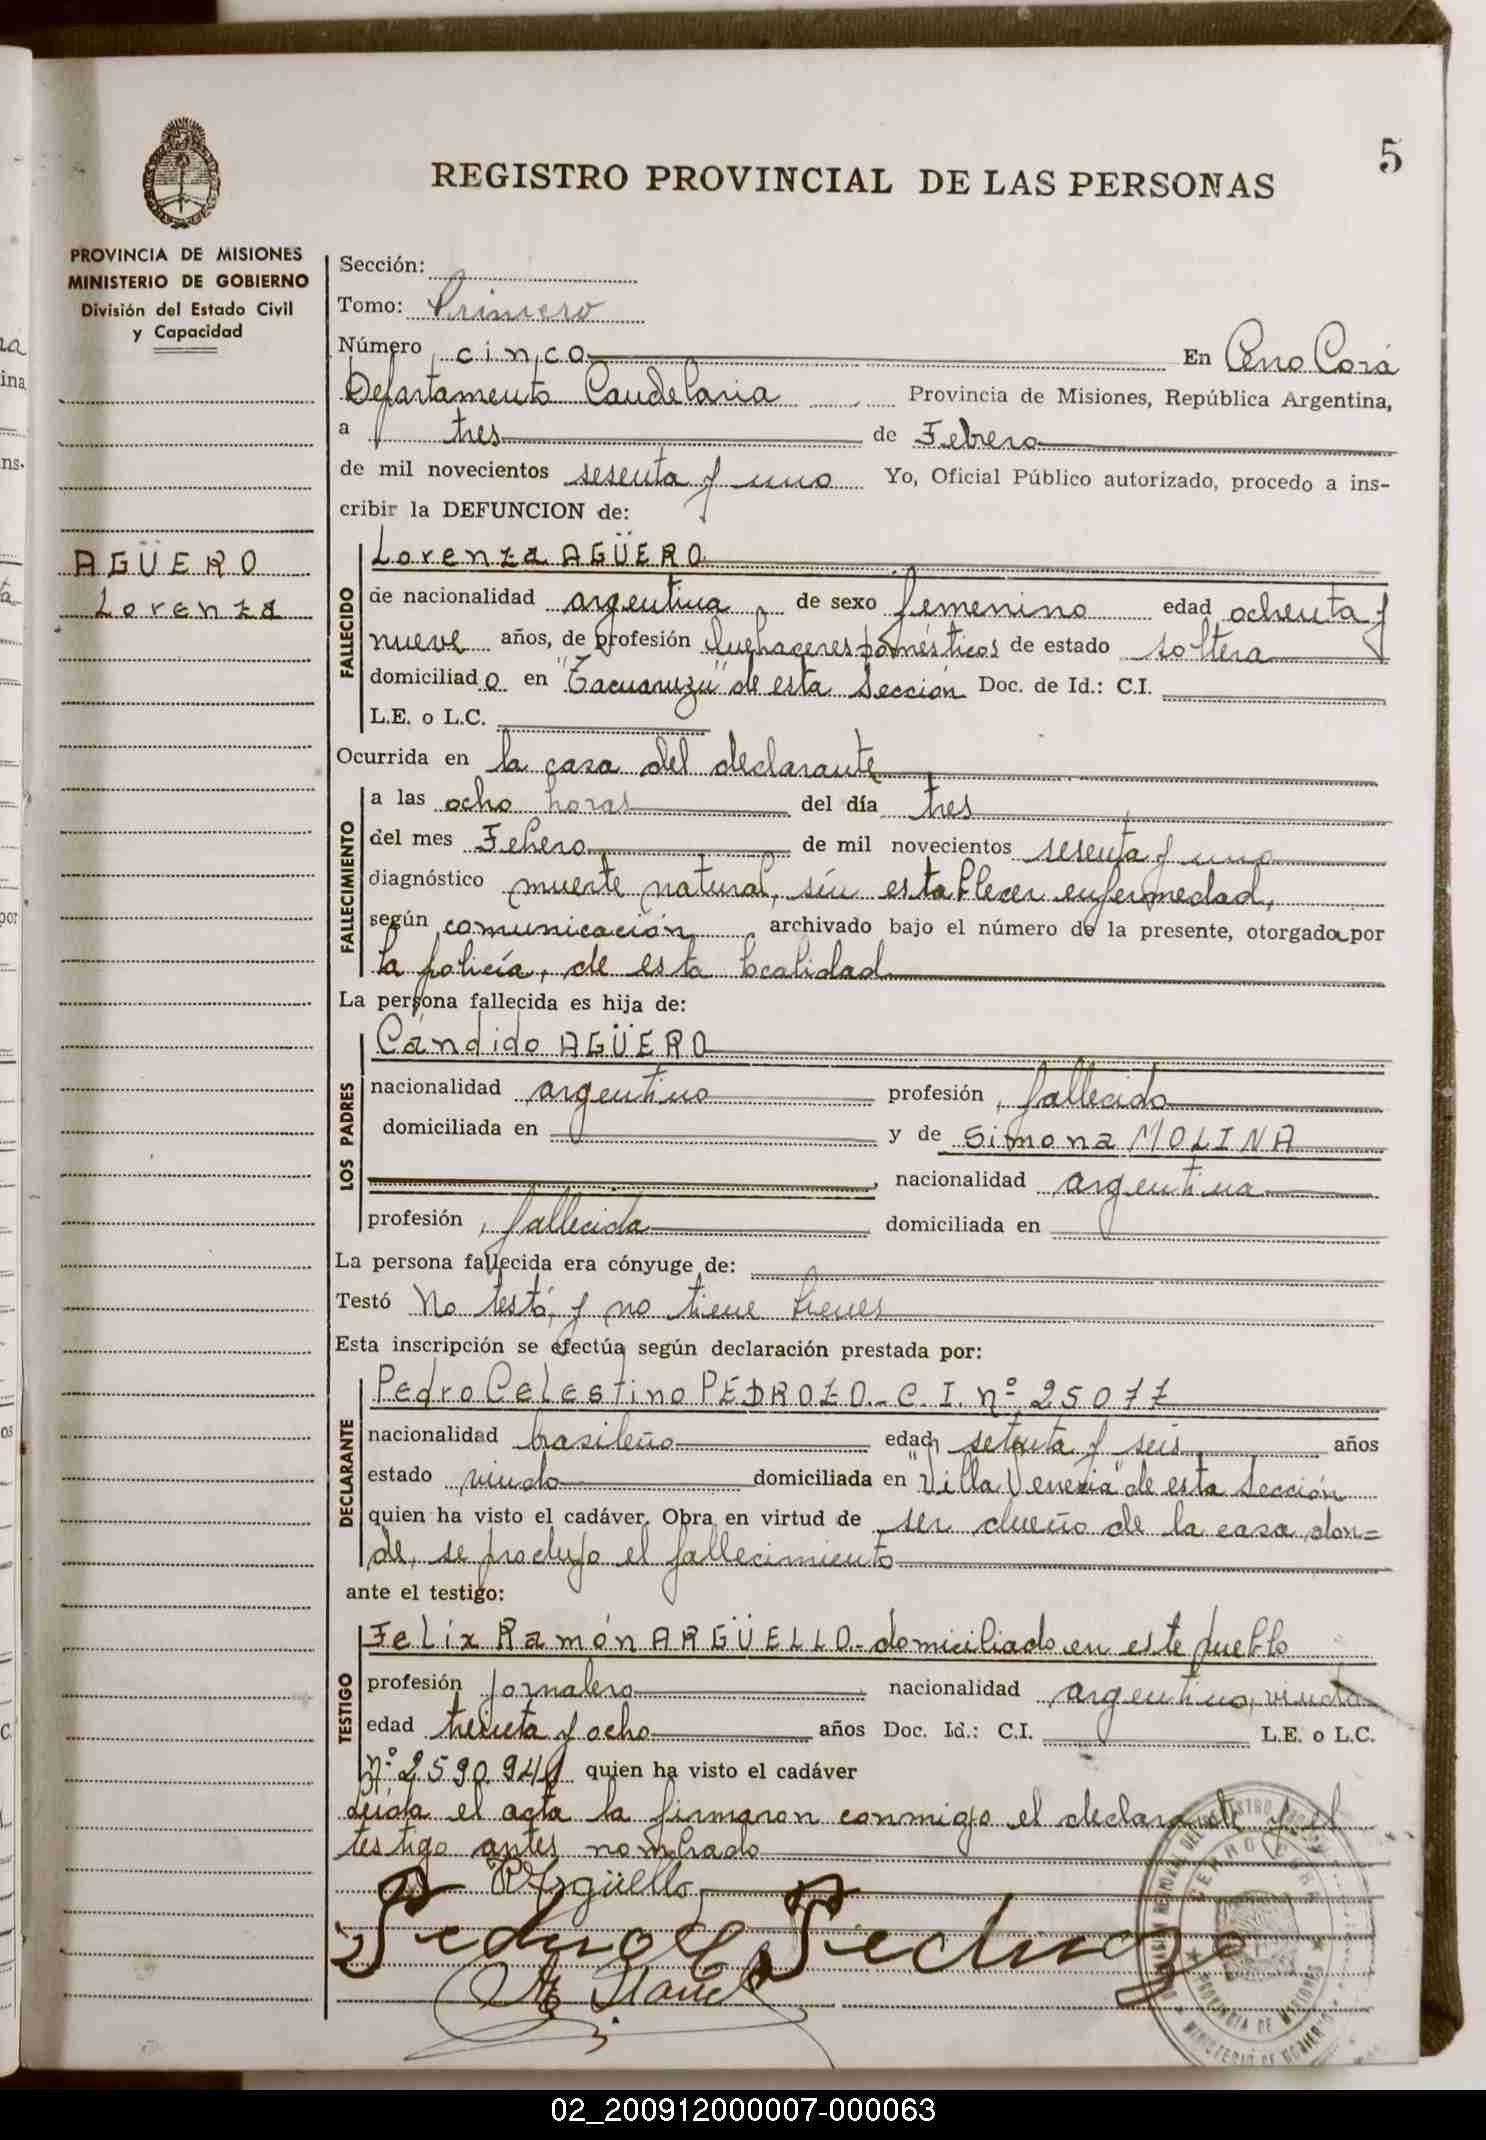 5
REGISTRO PROVINCIAL DE LAS PERSONAS
PROVINCIA DE MISIONES
MINISTERIO DE GOBIERNO
División del Estado Civil
y Capacidad
AGÜERO
Lorenza
Sección:
Tomo: Primero
Número cinco En Cerro Corá
Departamento Candelaria Provincia de Misiones, República Argentina,
a tres de Febrero
de mil novecientos sesenta y uno Yo, Oficial Público autorizado, procedo a ins-
cribir la DEFUNCION de:
FALLECIDO
Lorenza AGÜERO
de nacionalidad argentina, de sexo femenino edad ochenta y
nueve años, de profesión quehaceres domésticos de estado soltera
domiciliado en "Tacuaruzu" de esta Sección Doc. de Id.: C.I.
L.E. o L.C.
Ocurrida en la casa del declarante
FALLECIMIENTO
a las ocho horas del día tres
del mes Febrero de mil novecientos sesenta y uno
diagnóstico muerte natural, sin establecer enfermedad,
según comunicación archivado bajo el número de la presente, otorgada por
la policía, de esta localidad
La persona fallecida es hija de:
LOS PADRES
Cándido AGÜERO
nacionalidad argentino profesión fallecido
domiciliada en y de Simona MOLINA
nacionalidad argentina
profesión fallecida domiciliada en
La persona fallecida era cónyuge de:
Testó No testó, y no tiene bienes
Esta inscripción se efectúa según declaración prestada por:
DECLARANTE
Pedro Celestino PEDROZO.- C.I. nº 25077
nacionalidad brasileño edad setenta y seis años
estado viudo domiciliada en "Villa Venecia" de esta Sección
quien ha visto el cadáver. Obra en virtud de ser dueño de la casa don=
de, se produjo el fallecimiento
ante el testigo:
TESTIGO
Felix Ramón ARGÜELLO.- domiciliado en este pueblo
profesión jornalero nacionalidad argentino, viudo
edad treinta y ocho años Doc. Id.: C.I. L.E. o L.C.
Nº 2590941 quien ha visto el cadáver
Leída el acta la firmaron conmigo el declarante y el
testigo antes nombrado
R Argüello
Pedro C Pedrozo
CERRO CORA
PROVINCIA DE MISIONES
MINISTERIO DE GOBIERNO
02_200912000007-000063